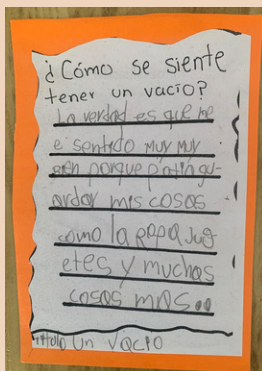 ¿Cómo se siente
tener un vacio?
La verdad es que me
e sentido muy muy
bien porque p
ardar mis cosas
como la ropa jug
etes y muchas
cosas mas...
titulo un vacio